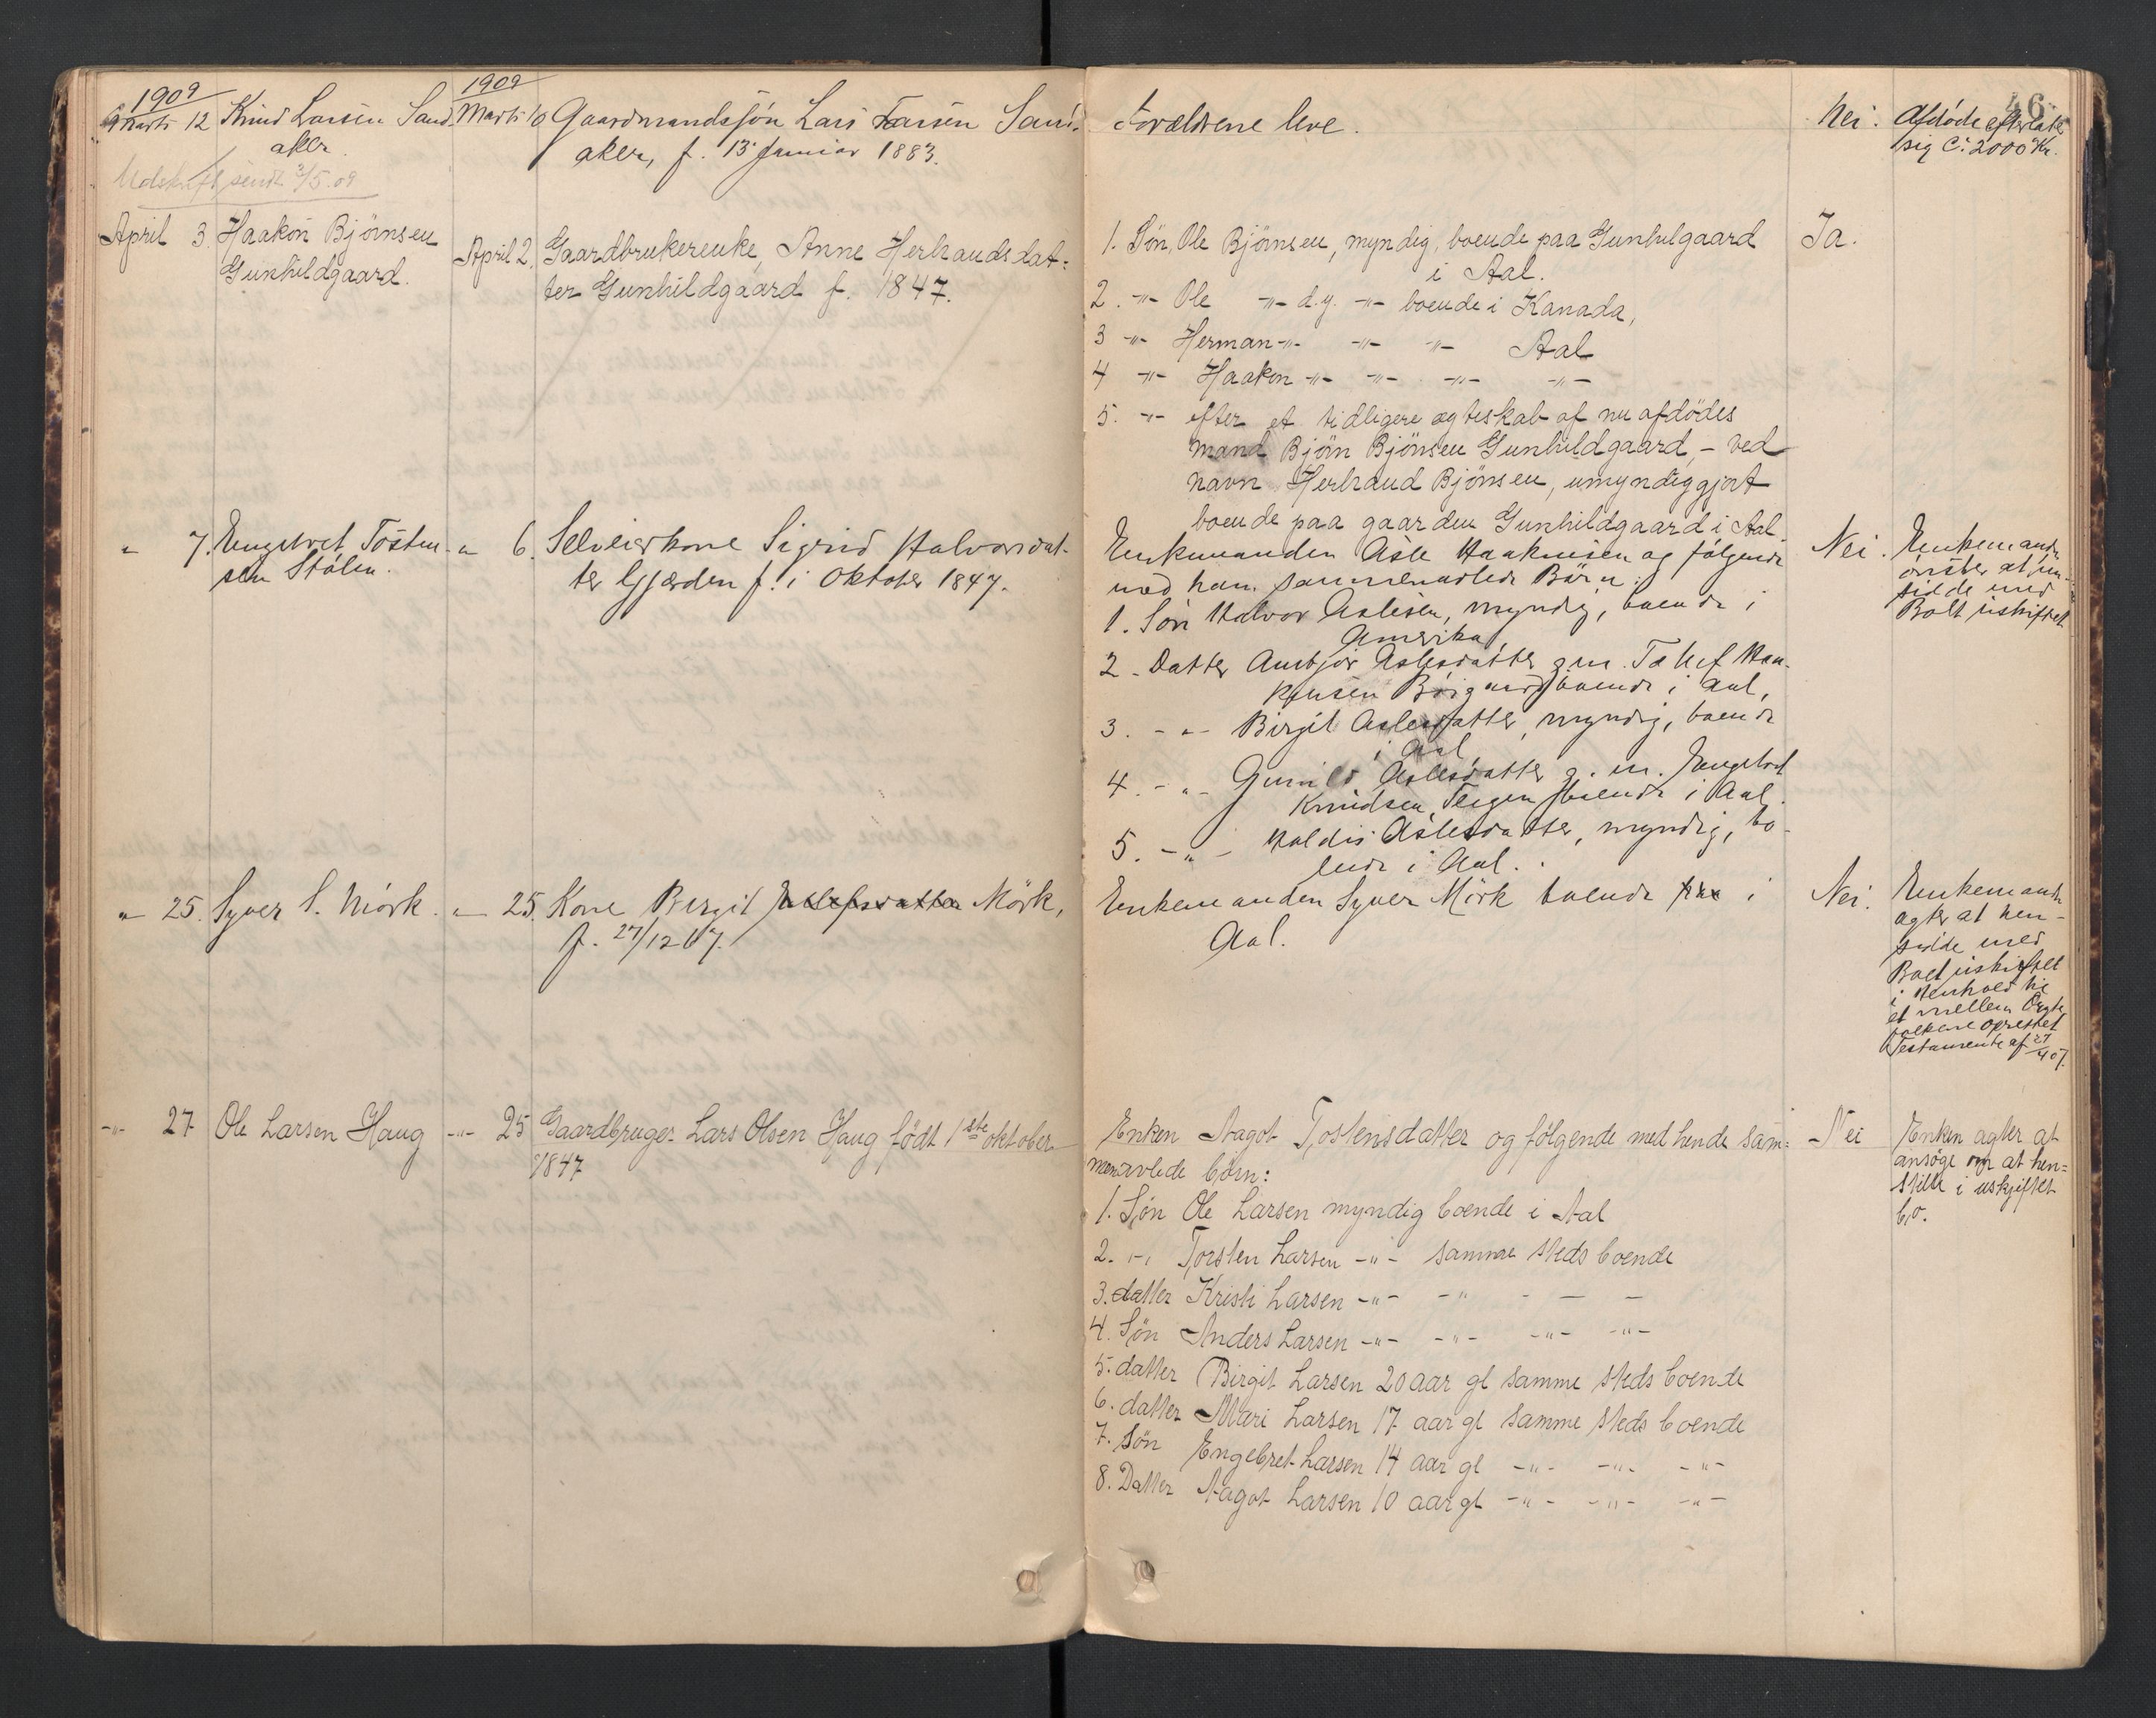 46.
1909
Marts 12 Knud Larsen Sand-
aker.
Udskrift sendt 3/5.09
1909
Marts 10 Gaardmandssøn Lars Larsen Sand-
aker, f. 13 Januar 1883.
Forældrene leve.
Nei. Afdøde efterlater
sig C. 2000 Kr.
April 3. Haakon Bjørnsen
Gunhildgaard.
April 2. Gaardbrukerenke, Anne Herbrandsdat-
ter Gunhildgaard f. 1847.
1. Søn, Ole Bjørnsen, myndig, boende paa Gunhilgaard
i Aal.
2. -"- Ole -"- d.y. -"- boende i Kanada,
3 -"- Herman -"- -"- -"- Aal
4 -"- Haakon -"- -"- -"- -"-
5. -"- efter et tidligere ægteskab af nu afdødes
mand Bjørn Bjønsen Gunhildgaard, - ved
navn Herbrand Bjønsen, umyndiggjort
boende paa gaarden Gunhildgaard i Aal.
Ja.
" 7. Engebret Tosten-
sen Stølen.
" 6. Selveierkone Sigrid Halvorsdat-
ter Gjerden f. i Oktober 1847.
Enkemanden Asle Haakensen og følgende
med ham sammenavlede Børn:
1. Søn Halvor Aslesen, myndig, boende i
Amerika
2. Datter Ambjør Aslesdatter g. m. Tollef Haa-
kensen Børigaard, boende i Aal,
3. -"- Birgit Aslesdatter, myndig, boende
i Aal
4. -"- Gunild Aslesdatter g. m. Engebret
Knudsen Teigen, boende i Aal.
5. -"- Haldis Aslesdatter, myndig, bo-
ende i Aal.
Nei. Enkemanden
ønsker at hen-
sidde med
Boet uskiftet
" 25. Syver S. Mørk.
" 25. Kone Birgit Mørk,
f. 27/12 67.
Enkemanden Syver Mørk boende i
Aal.
Nei. Enkemanden
agter at hen-
sidde med
Boet uskiftet
i Henhold til
et mellem Ægte-
folkene oprettet
Testamente af 27/4 07.
-"- 27 Ole Larsen Haug
-"- 25 Gaardbruger Lars Olsen Haug født 1ste oktober
1847
Enken Aagot Tostensdatter og følgende med hende sam-
menavlede børn:
1. Søn Ole Larsen myndig boende i Aal
2. -"- Torsten Larsen -"- samme steds boende
3. datter Kristi Larsen -"- -"- - - -
4. Søn Anders Larsen -"- -"- -"- -"-
5. datter Birgit Larsen 20 aar gl samme steds boende
6. datter Mari Larsen 17 aar gl samme steds boende
7. søn Engebret Larsen 14 aar gl -"- -"- -"-
8. Datter Aagot Larsen 10 aar gl -"- -"- -"-
Nei Enken agter at
ansøge om at hen-
sidde i uskiftet
bo.